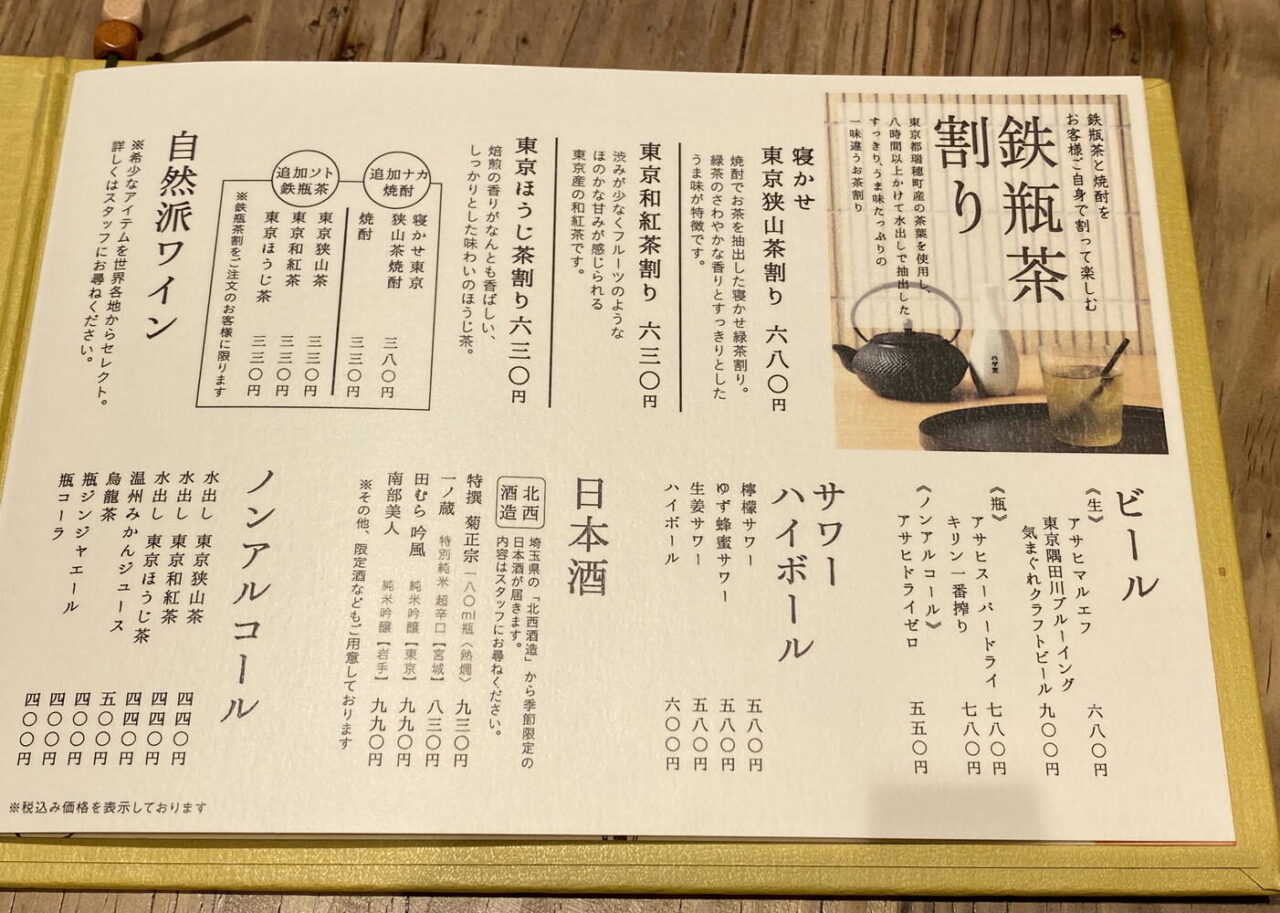 鉄瓶茶と焼酎を
お客様ご自身で割って楽しむ
鉄瓶茶
割り
東京都瑞穂町産の茶葉を使用し、
八時間以上かけて水出しで抽出した
すっきり、うま味たっぷりの
一味違うお茶割り
寝かせ
東京狭山茶割り 六八〇円
焼酎でお茶を抽出した寝かせ緑茶割り。
緑茶のさわやかな香りとすっきりとした
うま味が特徴です。
東京和紅茶割り 六三〇円
渋みが少なくフルーツのような
ほのかな甘みが感じられる
東京産の和紅茶です。
東京ほうじ茶割り 六三〇円
焙煎の香りがなんとも香ばしい、
しっかりとした味わいのほうじ茶。
追加ナカ
焼酎
寝かせ東京
狭山茶焼酎 三八〇円
焼酎 三三〇円
追加ソト
鉄瓶茶
東京狭山茶 三三〇円
東京和紅茶 三三〇円
東京ほうじ茶 三三〇円
※鉄瓶茶割をご注文のお客様に限ります
自然派ワイン
※希少なアイテムを世界各地からセレクト。
詳しくはスタッフにお尋ねください。
ビール
《生》
アサヒマルエフ 六八〇円
東京隅田川ブルーイング
気まぐれクラフトビール 九〇〇円
《瓶》
アサヒスーパードライ 七八〇円
キリン一番搾り 七八〇円
《ノンアルコール》
アサヒドライゼロ 五五〇円
サワー
ハイボール
檸檬サワー 五八〇円
ゆず蜂蜜サワー 五八〇円
生姜サワー 五八〇円
ハイボール 六〇〇円
日本酒
北西
酒造
埼玉県の「北西酒造」から季節限定の
日本酒が届きます。
内容はスタッフにお尋ねください。
特撰 菊正宗 一八〇ml瓶〈熱燗〉 九三〇円
一ノ蔵 特別純米 超辛口【宮城】 八三〇円
田むら 吟風 純米吟醸【東京】 九九〇円
南部美人 純米吟醸【岩手】 九九〇円
※その他、限定酒などもご用意しております
ノンアルコール
水出し 東京狭山茶 四四〇円
水出し 東京和紅茶 四四〇円
水出し 東京ほうじ茶 四四〇円
温州みかんジュース 五〇〇円
烏龍茶 四〇〇円
瓶ジンジャエール 四〇〇円
瓶コーラ 四〇〇円
※税込み価格を表示しております